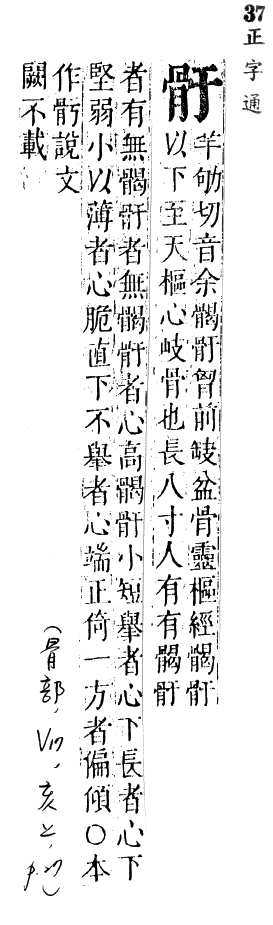 37正字通
骬
羊劬切音余𩩲骬胷前𡙇盆骨靈樞經𩩲骬
以下至天樞心岐骨也長八寸人有有𩩲骬
者有無𩩲骬者無𩩲骬者心高𩩲骬小短舉者心下長者心下
堅弱小以薄者心脆直下不舉者心端正倚一方者偏傾〇本
作骬說文
闕不載
(骨部,